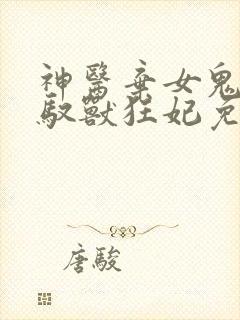 神醫棄女鬼
馭獸狂妃免
唐駿